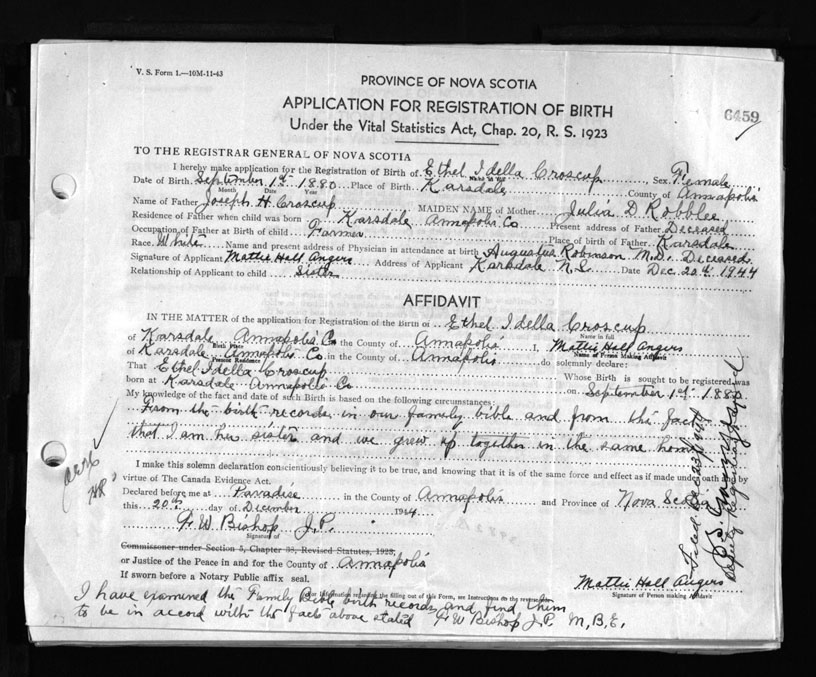 V. S. Form 1.—10M-11-43
PROVINCE OF NOVA SCOTIA
APPLICATION FOR REGISTRATION OF BIRTH
6459
Under the Vital Statistics Act, Chap. 20, R. S. 1923
TO THE REGISTRAR GENERAL OF NOVA SCOTIA
I hereby make application for the Registration of Birth of Ethel Idella Croscup Sex Female
Date of Birth September 1st 1880 Place of Birth Karsdale County of Annapolis
Month Date Year
Name of Father Joseph H. Croscup MAIDEN NAME of Mother Julia D Robblee
Residence of Father when child was born Karsdale Annapolis Co Present address of Father Deceased
Occupation of Father at Birth of child Farmer Place of birth of Father Karsdale
Race White Name and present address of Physician in attendance at birth Augustus Robinson M.D. Deceased
Signature of Applicant Mattie Hall Angers Address of Applicant Karsdale N.S. Date Dec. 20th 1944
Relationship of Applicant to child Sister
AFFIDAVIT
IN THE MATTER of the application for Registration of the Birth of Ethel Idella Croscup
Name in full
of Karsdale Annapolis Co in the County of Annapolis I, Mattie Hall Angers
Birth Place Name of Person Making Affidavit
of Karsdale Annapolis Co. in the County of Annapolis do solemnly declare:
Present Residence
That Ethel Idella Croscup Whose Birth is sought to be registered was
born at Karsdale Annapolis Co on September 1st 1880
My knowledge of the fact and date of such Birth is based on the following circumstances:
From the birth records in our family bible and from the fact
that I am her sister and we grew up together in the same home
I make this solemn declaration conscientiously believing it to be true, and knowing that it is of the same force and effect as if made under oath and by
virtue of The Canada Evidence Act.
Declared before me at Paradise in the County of Annapolis and Province of Nova Scotia
this 20th day of December 1944
F W Bishop J.P.
Signature of
Commissioner under Section 5, Chapter 38, Revised Statutes, 1923,
or Justice of the Peace in and for the County of Annapolis
If sworn before a Notary Public affix seal.
Mattie Hall Angers
Signature of Person making Affidavit
(For Information regarding the filling out of this Form, see Instructions on the reverse side)
I have examined the Family Bible birth records and find them
to be in accord with the facts above stated F W Bishop J.P. M.B.E.
Deputy Registrar